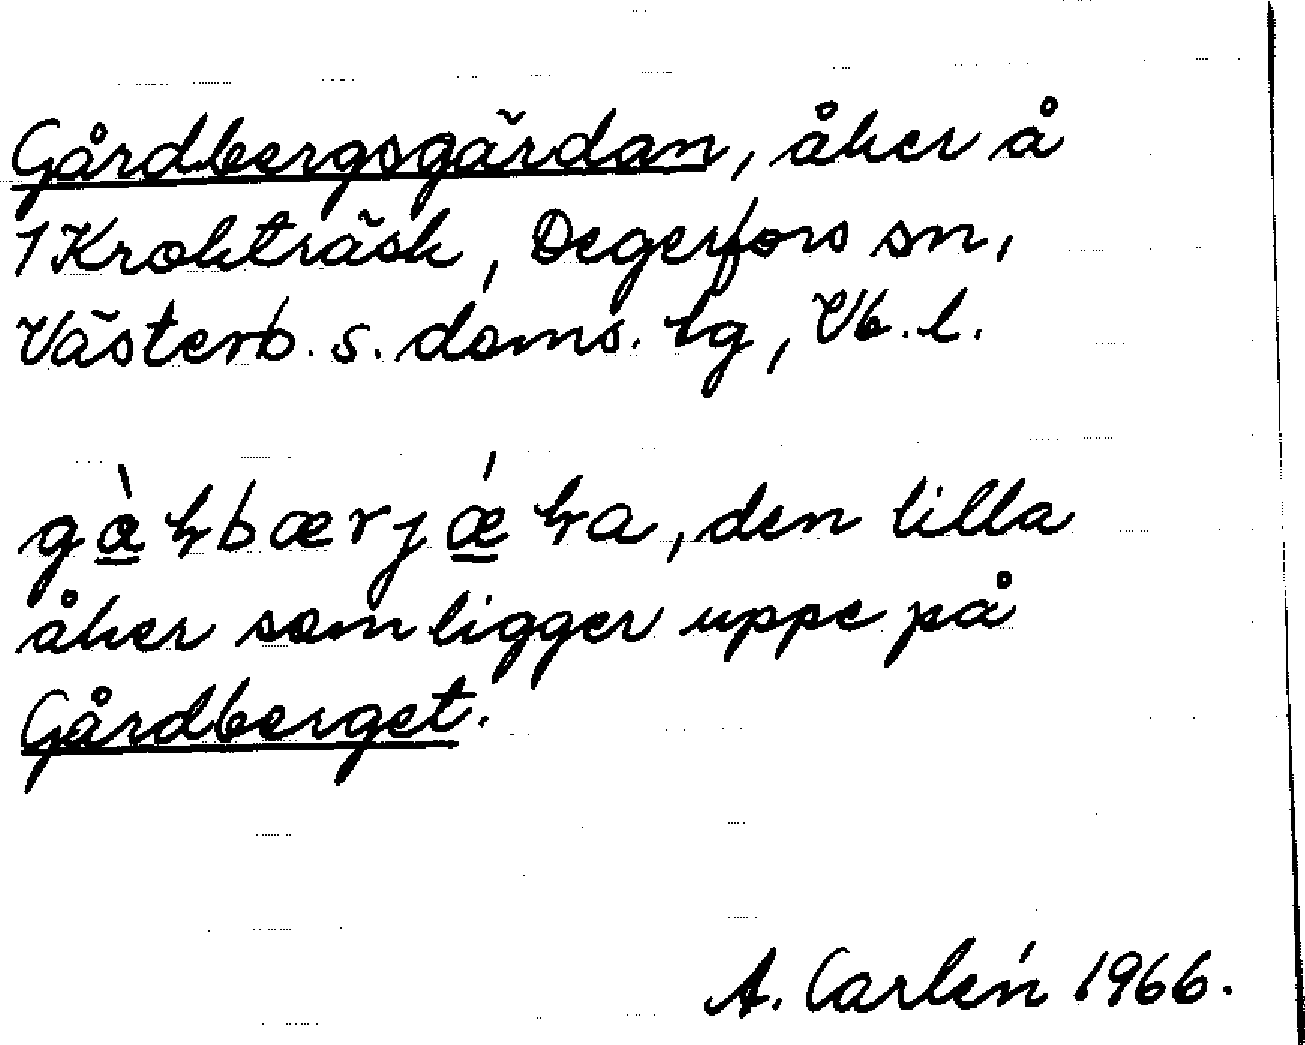 Gårdbergsgärdan, åker å
1 Krokträsk, Degerfors sn,
Västerb. s. doms. tg, Vb. l.
den lilla
åker som ligger uppe på
Gårdberget.
A. Carlén 1966.